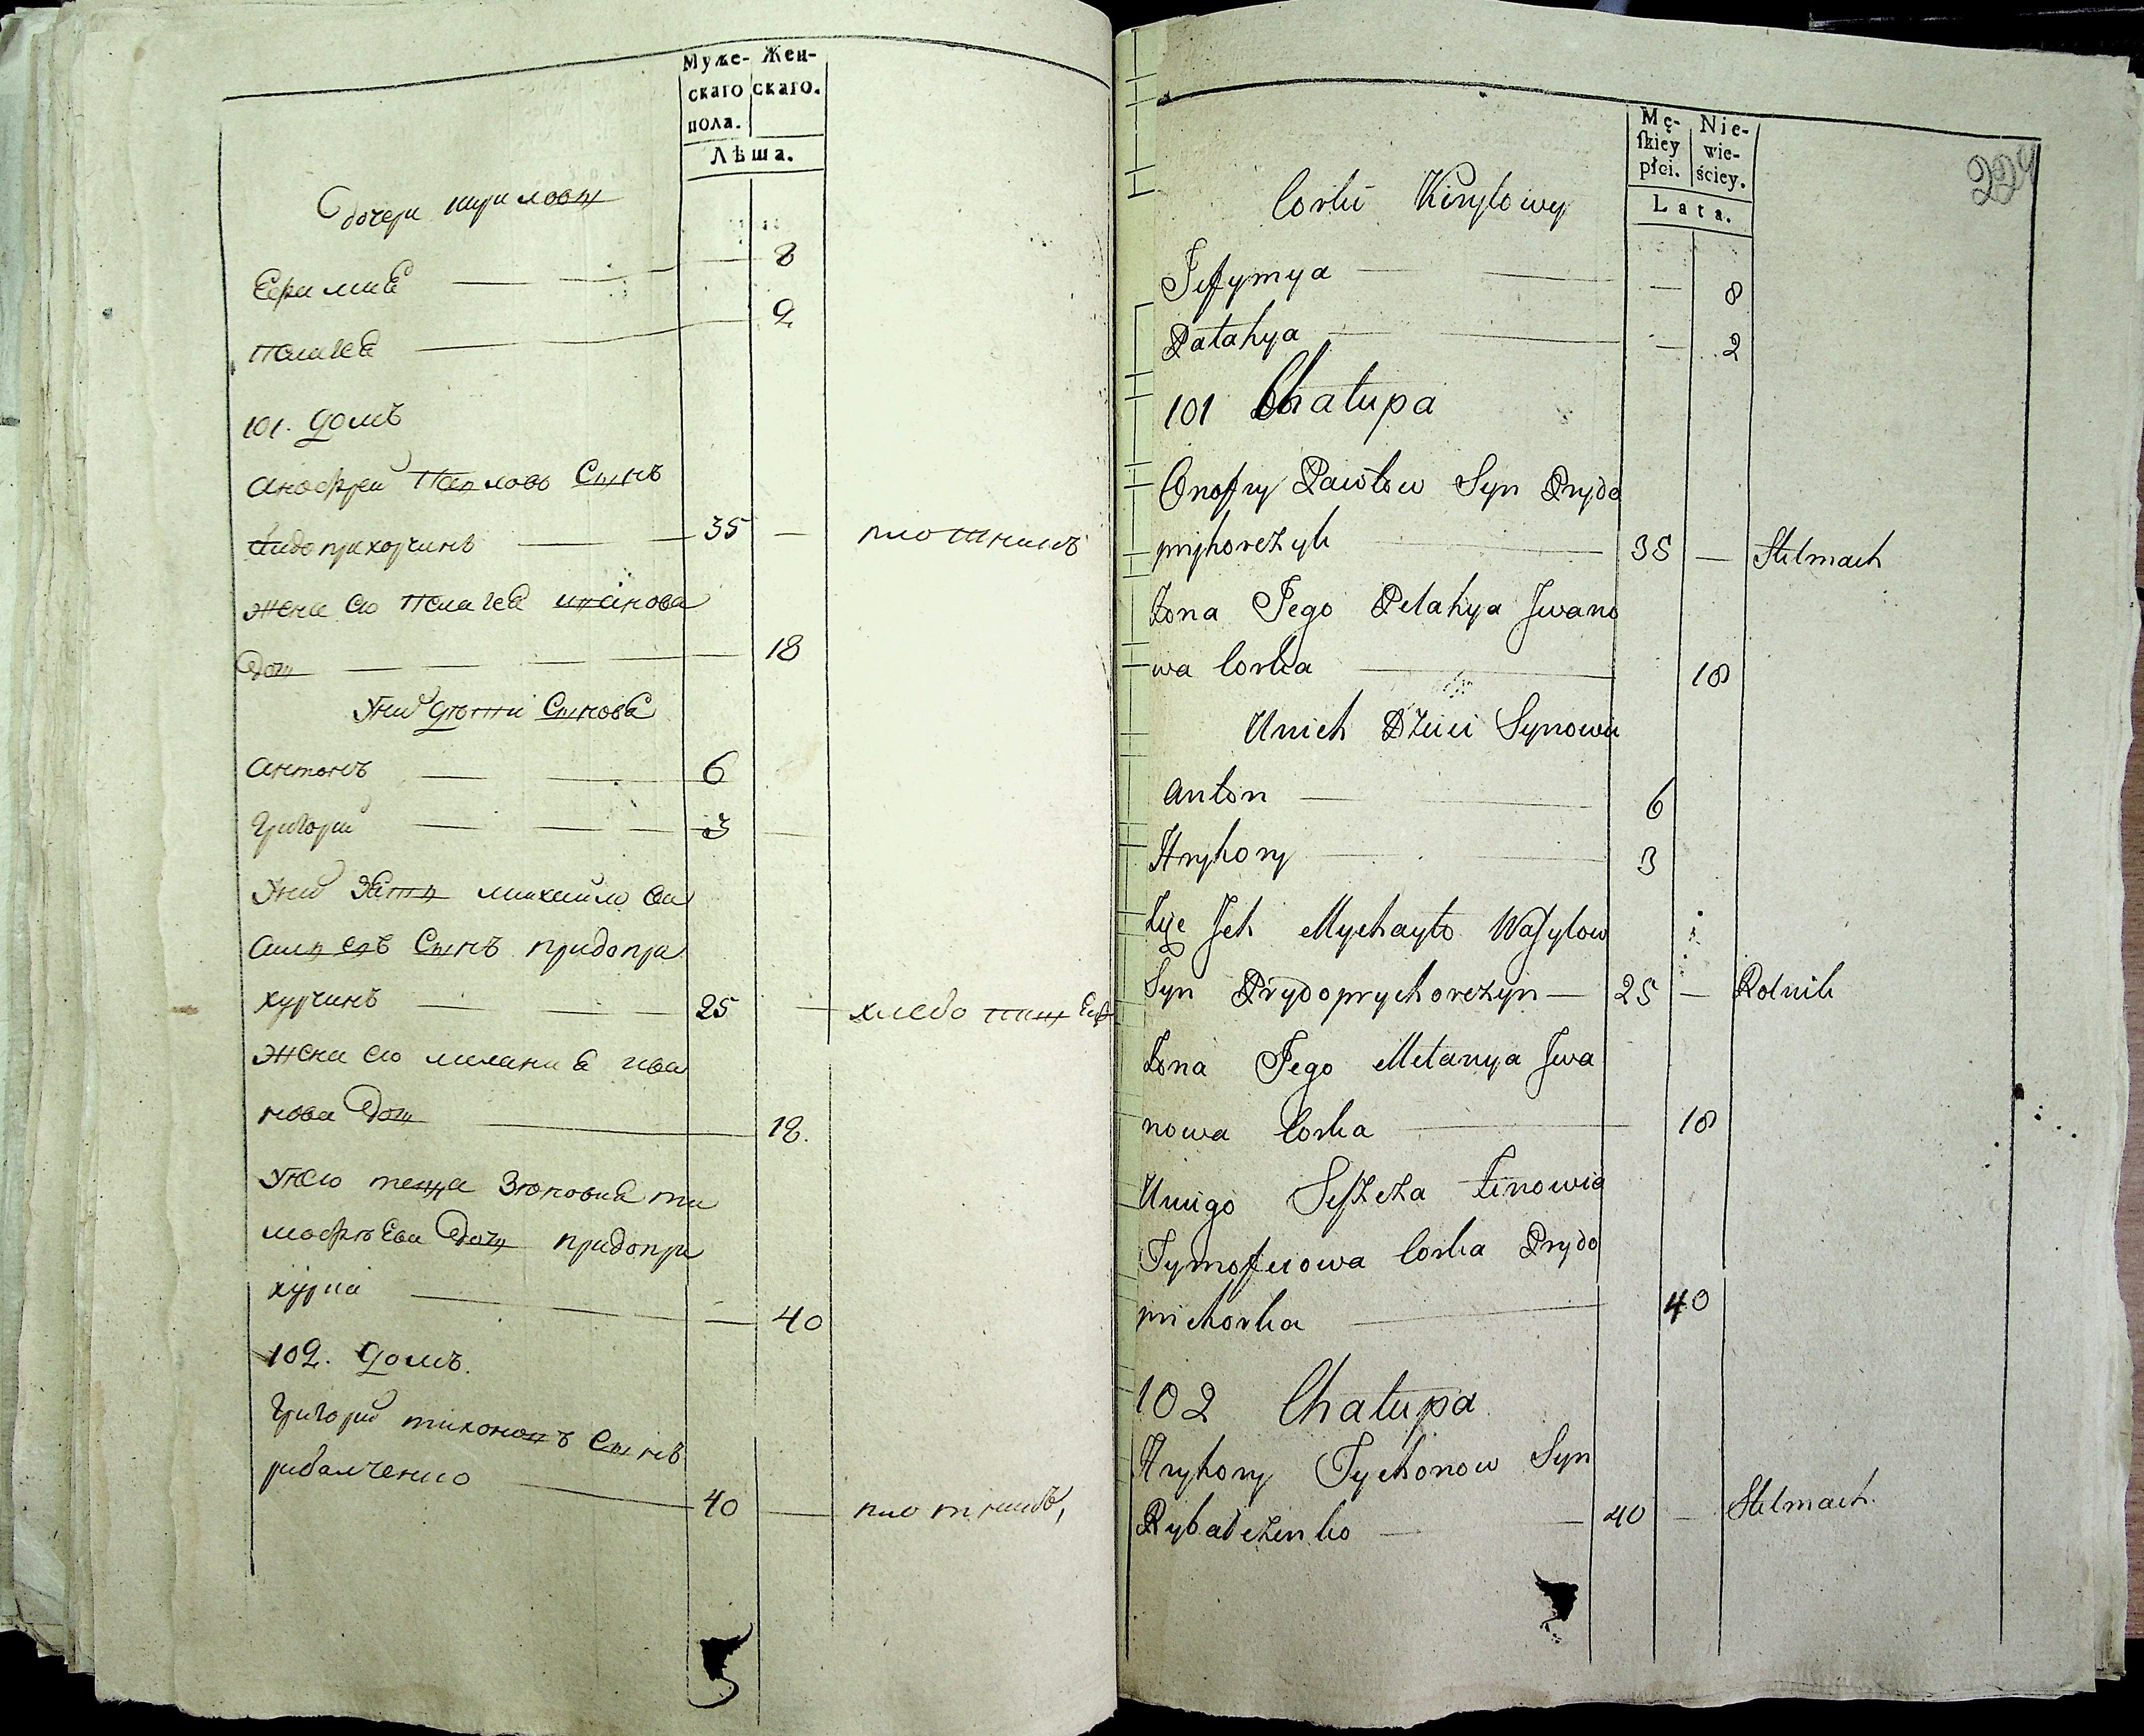 Муже- Жен-
скаго скаго.
пола.
Лѣта.
дочери кириловы
Ефимиѣ — — — 8
Палагеѣ — 2
101. Домъ
Анофрей Павловъ Сынъ
Придоприхорчинъ — — 35 — плотникъ
Жена Его Пелагеѣ иванова
Дочь — — — — 18
Унихъ дѣти Сыновѣ
Антонъ — — 6
Григорий — — — 3 —
Унихъ Зять михайло ва
силевъ Сынъ придопри
хурчинъ — — — 25 — хлебопашецъ
Жена Его миланиѣ ива
нова Дочь — 18.
Унего теща Зѣновиѣ ти
мофѣева Дочь придопри
хурка — — 40
102. Домъ.
Григорий тихоновъ Сынъ
рибалченко — 40 — плотникъ,
Mę- Nie-
skiey wie-
płci. ściey.
Lata.
224
Corki Kiryłowy
Jefymya — — — 8
Patahya — — 2
101 Chałupa
Onofry Pawłow Syn Prydo
pryhorczyk — 35 — Stelmach
Żona Jego Pelahya Jwano
wa Corka — 18
Unich Dzieci Synowie
Anton — 6
Hryhory — 3
Zięc Jch Mychayło Wasylow
Syn Prydoprychorczyn — 25 — Rolnik
Żona Jego Melanya Jwa
nowa Corka — 18
Uniego Teszcza Zinowia
Tymofiiowa Corka Prydo
prichorka — 40
102 Chałupa
Hryhory Tychonow Syn
Rybałczenko — — 40 — Stelmach.